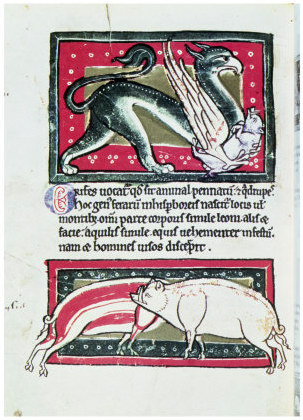 Grifes uocat qđ sit animal pennatū & qđrupes
hoc gen ferarū in hispboreis nascit locis ul
montib; omi parte corporis simile leoni alis &
facie aquilis simile. equis uehementer infestū
nam & homines uisos discerpit.